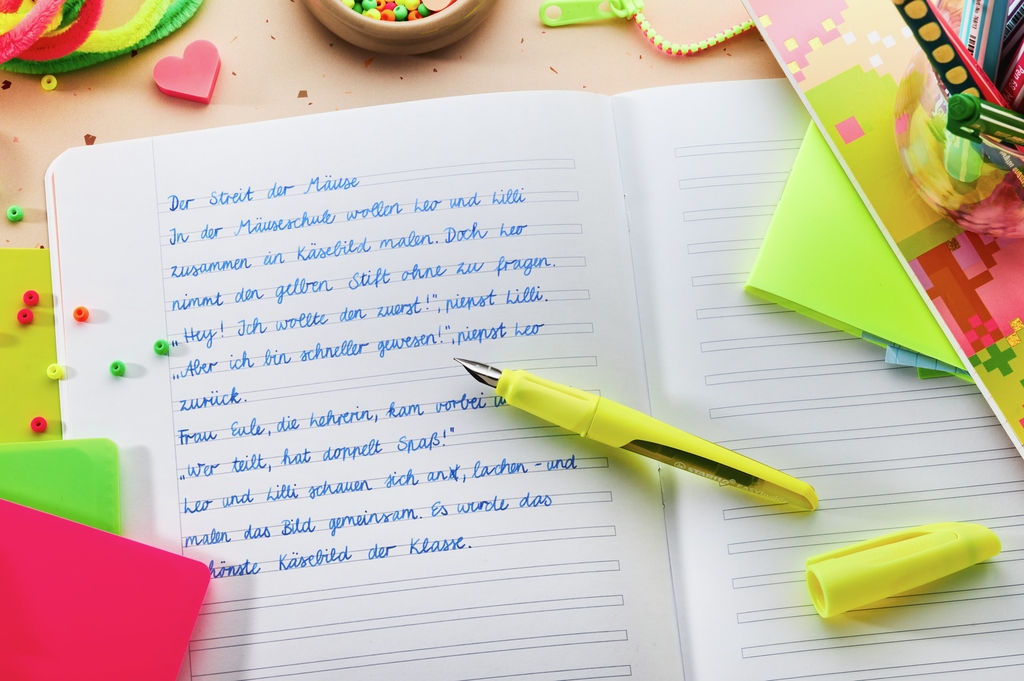 Der Streit der Mäuse
In der Mäuseschule wollen Leo und Lilli
zusammen an Käsebild malen. Doch Leo
nimmt den gelben Stift ohne zu fragen.
„Hey! Ich wollte den zuerst!", piepst Lilli.
„Aber ich bin schneller gewesen!", piepst Leo
zurück.
Frau Eule, die Lehrerin, kam vorbei
„Wer teilt, hat doppelt Spaß!"
Leo und Lilli schauen sich an, lachen - und
malen das Bild gemeinsam. Es wurde das
hönste Käsebild der Klasse.